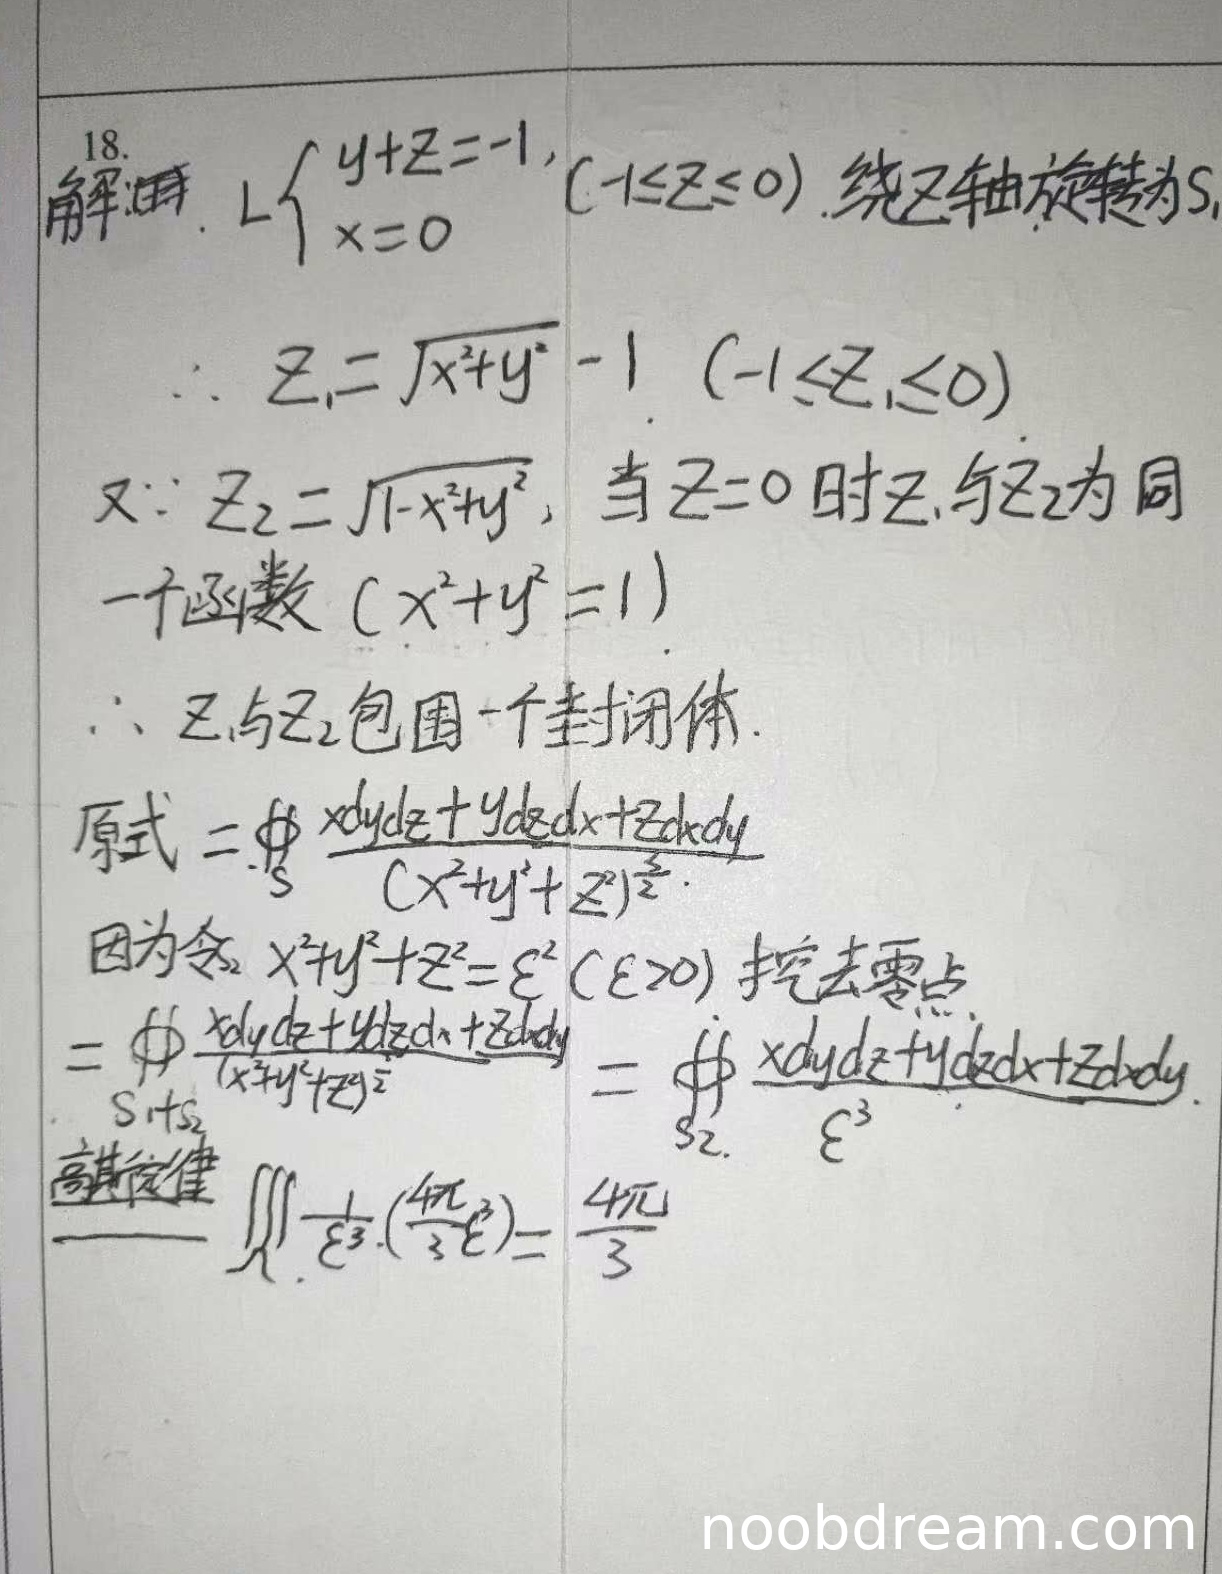 18.
解: L { y+z=-1, x=0 (-1≤z≤0). 绕Z轴旋转为S₁
∴ Z₁=√(x²+y²) -1 (-1≤Z₁≤0).
又∵ Z₂=√(1-x²+y²), 当Z=0时Z₁与Z₂为同
一个函数 (x²+y²=1).
∴ Z₁与Z₂包围一个封闭体.
原式 = ∯_S (xdydz+ydzdx+zdxdy)/(x²+y²+z²)^(3/2).
因为令S₂ x²+y²+z²=ε² (ε>0) 挖去零点.
= ∯_(S₁+S₂) (xdydz+ydzdx+zdxdy)/(x²+y²+z²)^(3/2) = ∯_(S₂) (xdydz+ydzdx+zdxdy)/ε³.
高斯定律 ∭_Ω 1/ε³·(4π/3 ε³) = 4π/3
noobdream.com